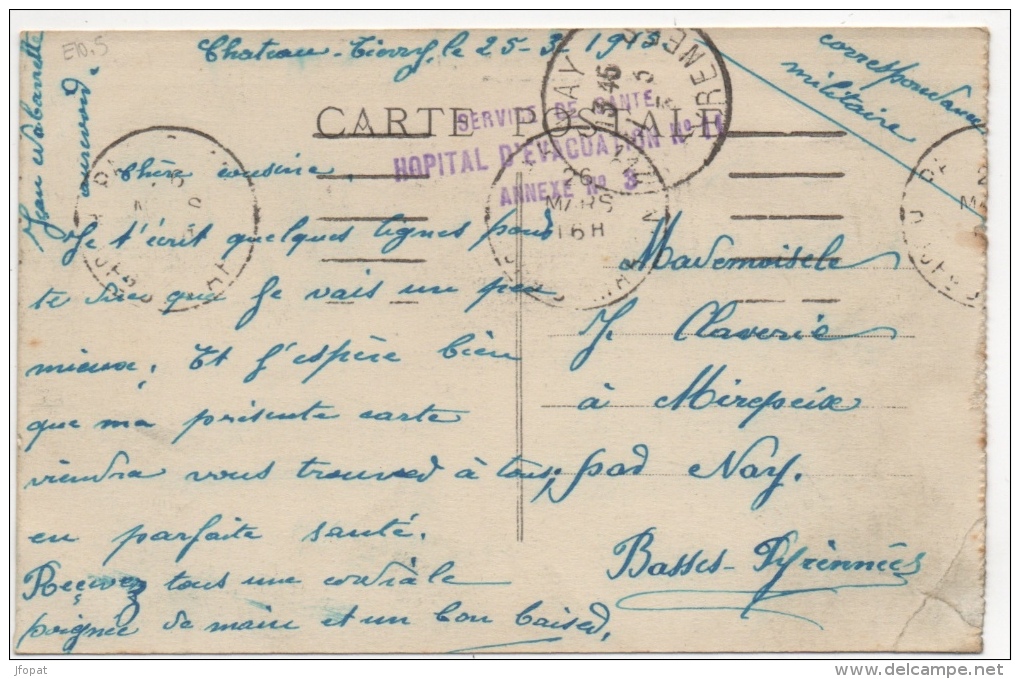 E10.5
Chateau-Tierry, le 25-3-1915
correspondance
militaire
CARTE POSTALE
SERVICE DE SANTE
HOPITAL D'EVACUATION Nº 11
ANNEXE Nº 3
26
MARS
16H
NAY
13 45
Chère cousine,
Je t'écrit quelques lignes pour
te dire que Je vais un peu
mieux. Et J'espère bien
que ma présente carte
viendra vous trouver à tous,
en parfaite santé.
Reçevez tous une cordiale
poignée de main et un bon baiser,
Jean
Mademoiselle
J. Claverie
à Mirepeix
par Nay.
Basses-Pyrénnées
jfopat
www.delcampe.net